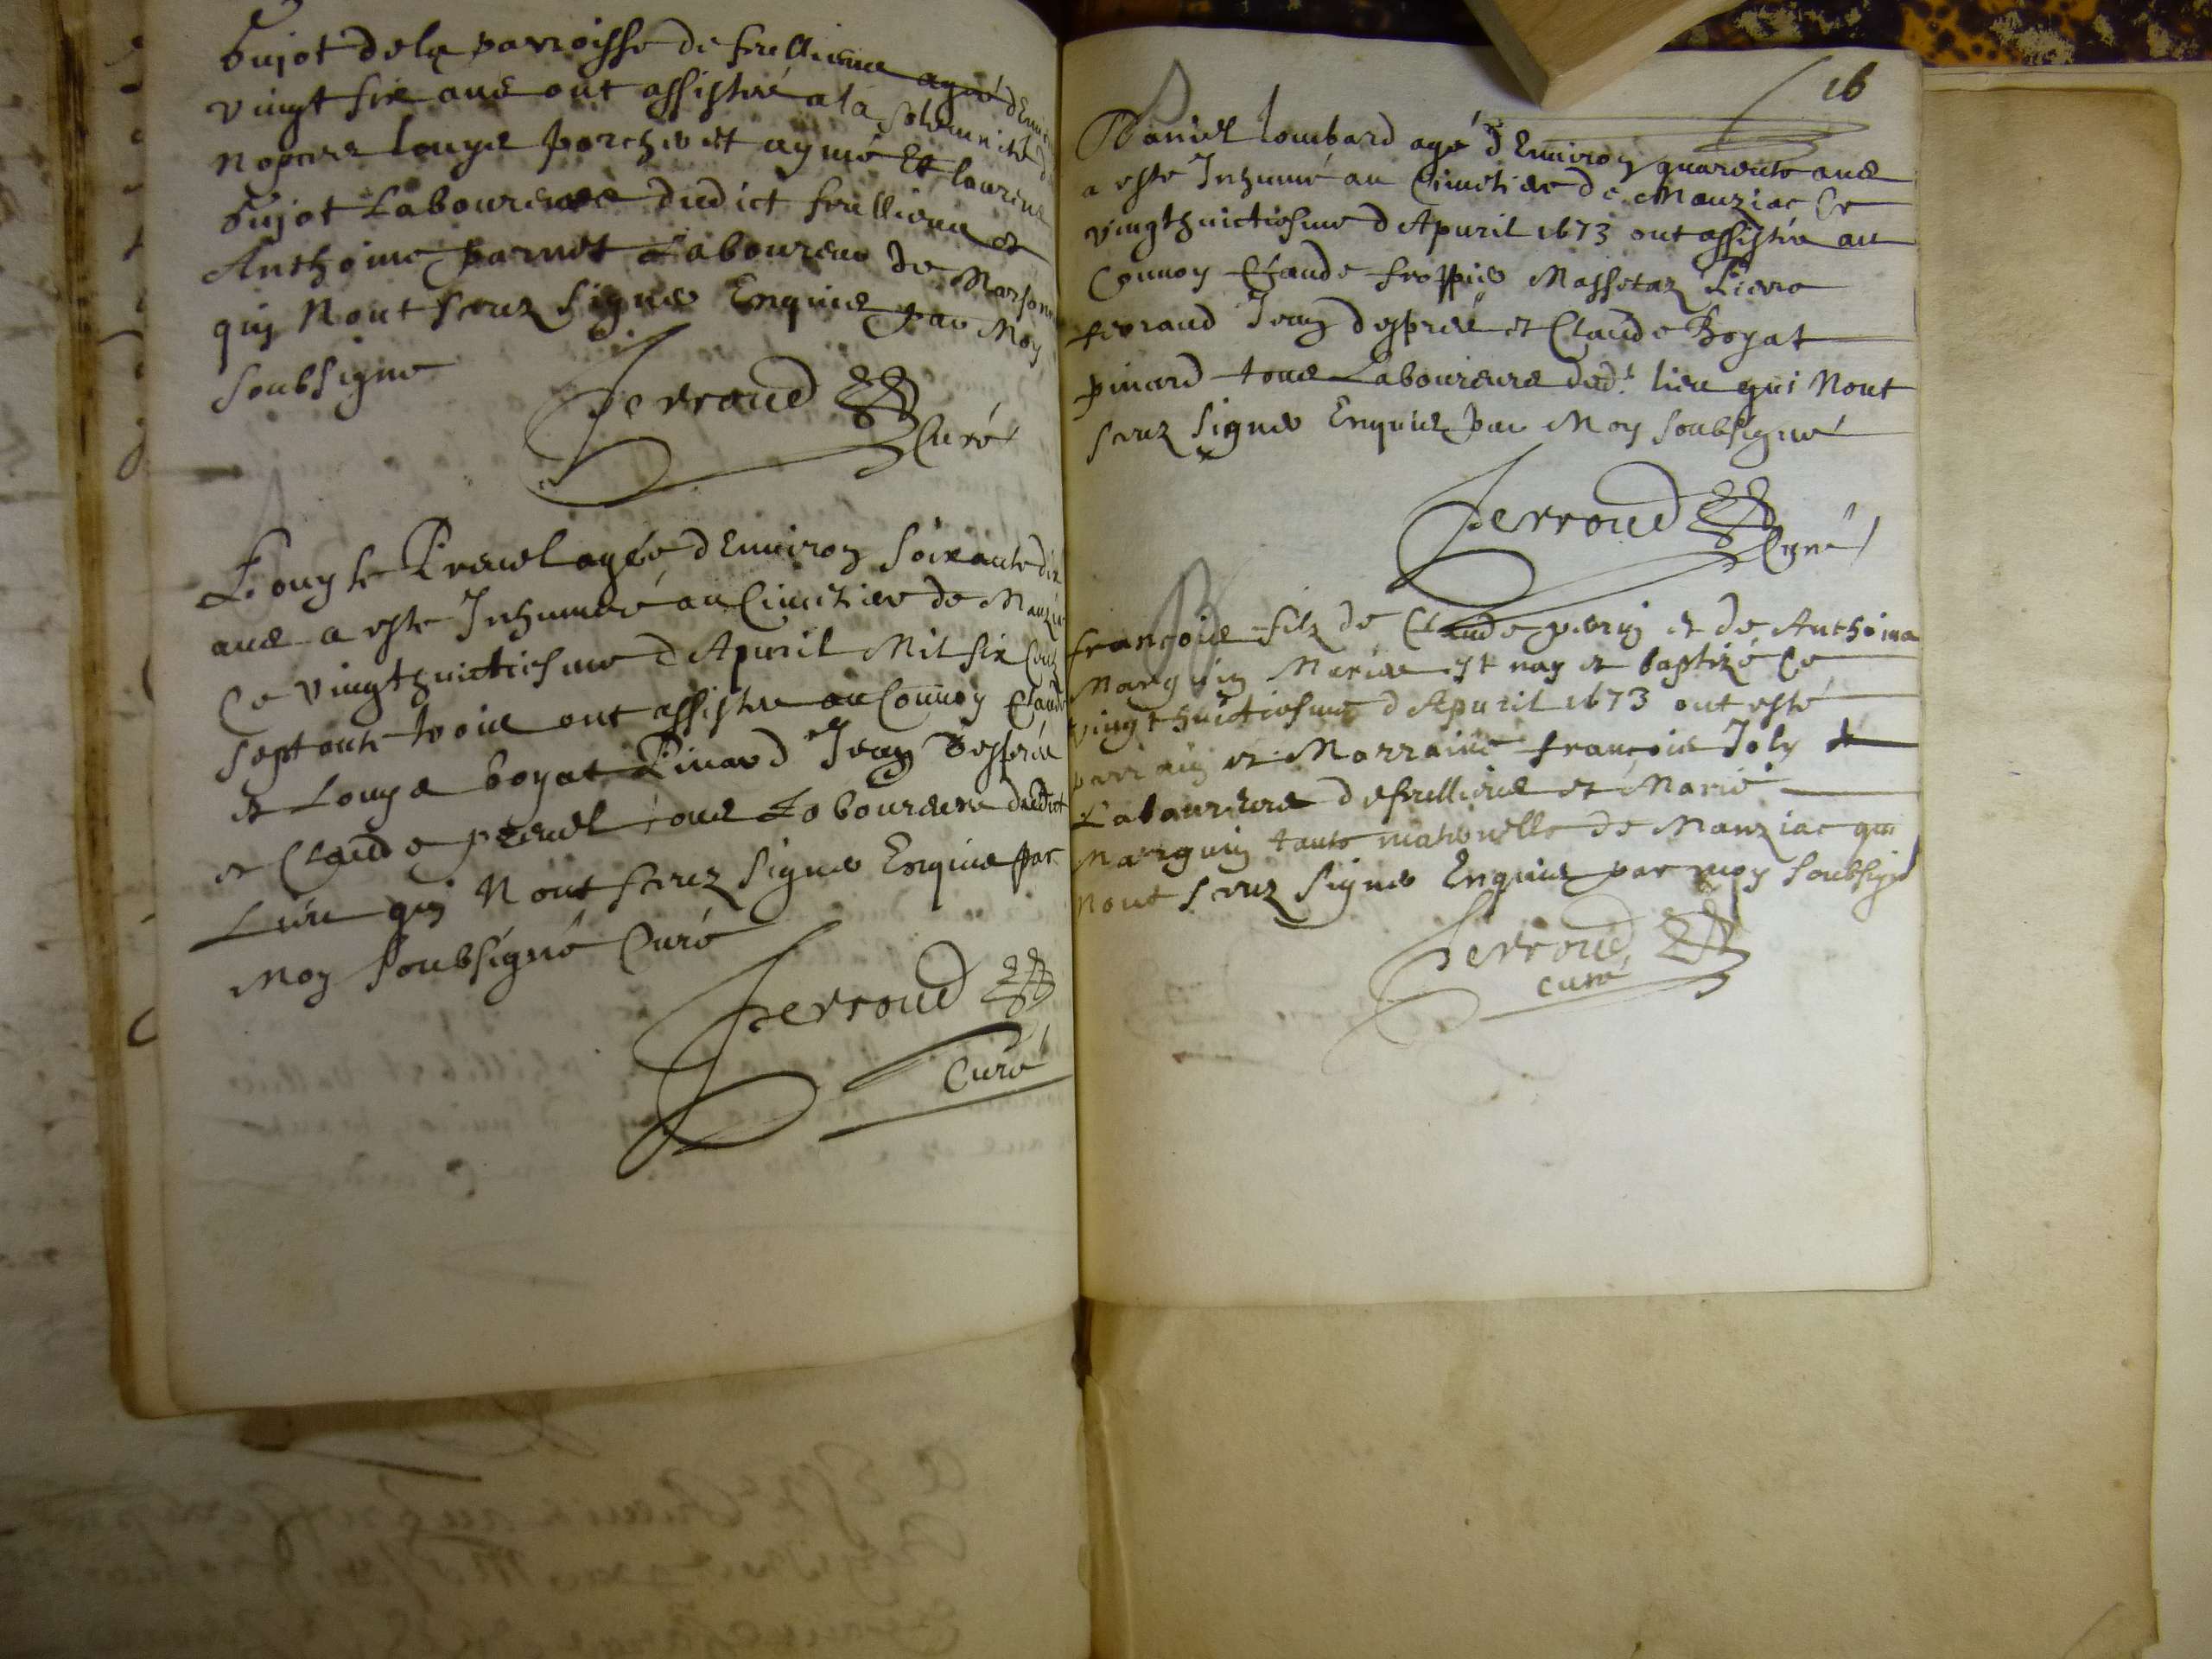 Bujot dela parroisse de feulliens agée dEnuiron
vingt six ans ont assistéz ala solemnité d
Nopces louys porcheret aymé Et laurens
Bujot Laboureurs dudict feulliens et
Anthoine parnet Laboureur de Marsona
quj Nont sceuz signer Enquis par Moy
soubsigne
Perroud
Curé
Louyse Preuel agée dEnuiron soixante dix
ans a este Inhumée au Cimetiere de Manzia
Ce vingthuictiesme dApuril Mil six Cens
septante trois ont assistez au Conuoy Claude
et Louys boyat Pinard Jean després
et Claude preuel tous Laboureurs dudict
Lieu quj Nont sceuz signer Enquis par
Moy soubsigné Curé
Perroud
Curé
16
Daniel lombard agé dEnuiron quarente ans
a este Inhumé au Cimetiere de Manziac Ce
vingthuictiesme dApuril 1673 ont assistéz au
Conuoy Claude froppier Massetaz Pierre
feoraud Jean després et Claude Boyat
pinard tous Laboureurs dud.t lieu qui Nont
sceuz signer Enquis par Moy soubsigné
Perroud
Curé
B
françois filz de Claude perrin et de Anthoina
Manguin Mariés est nay et baptizé Ce
vingthuictiesme dApuril 1673 ont esté
parrain et Marraine françois Joly
Laboureurs de feulliens et Marie
Manguin tante maternelle de Manziac qui
nont sceuz signer Enquis par moy soubsigné
Perroud
curé